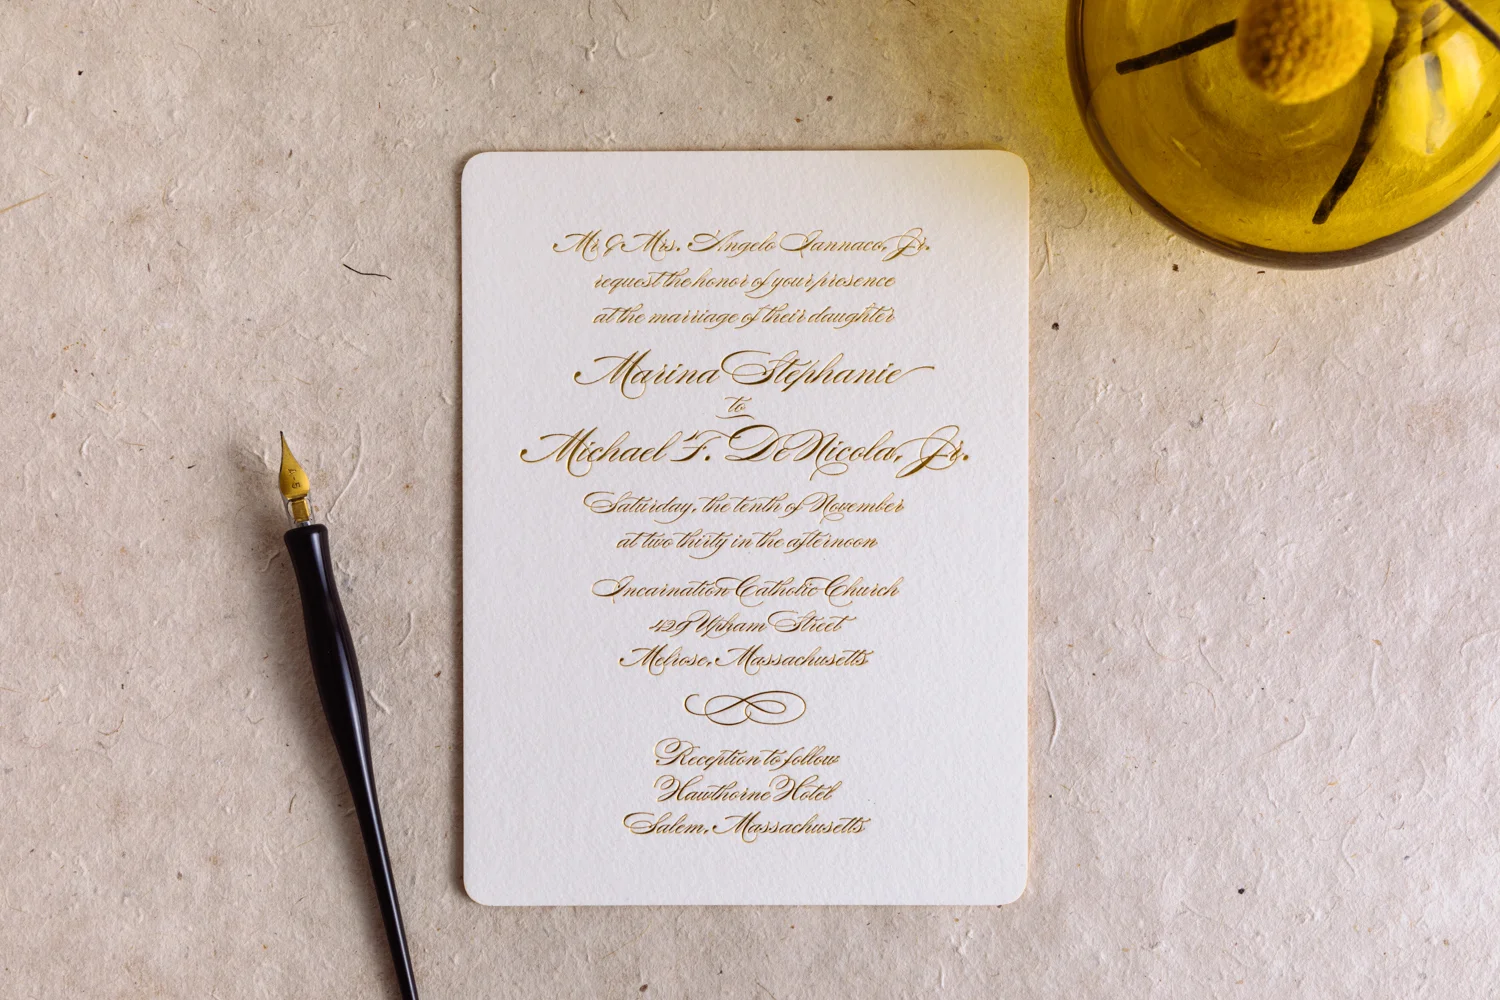 Mr. & Mrs. Angelo Iannaco, Jr.
request the honor of your presence
at the marriage of their daughter
Marina Stephanie
to
Michael F. DeNicola, Jr.
Saturday, the tenth of November
at two thirty in the afternoon
Incarnation Catholic Church
429 Upham Street
Melrose, Massachusetts
Reception to follow
Hawthorne Hotel
Salem, Massachusetts